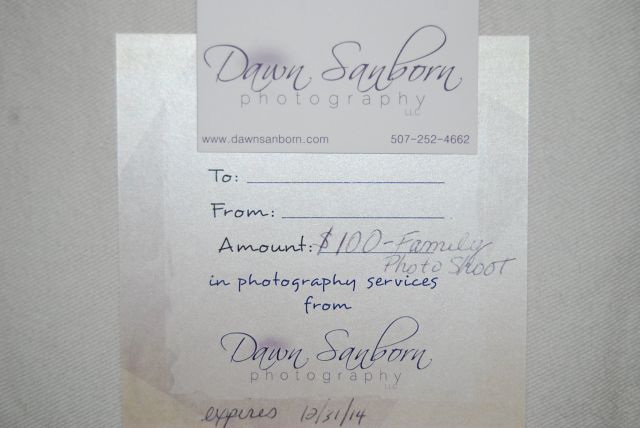 Dawn Sanborn
photography
LLC
www.dawnsanborn.com 507-252-4662
To:
From:
Amount: $100-Family
Photo Shoot
in photography services
from
Dawn Sanborn
photography
LLC
expires 12/31/14